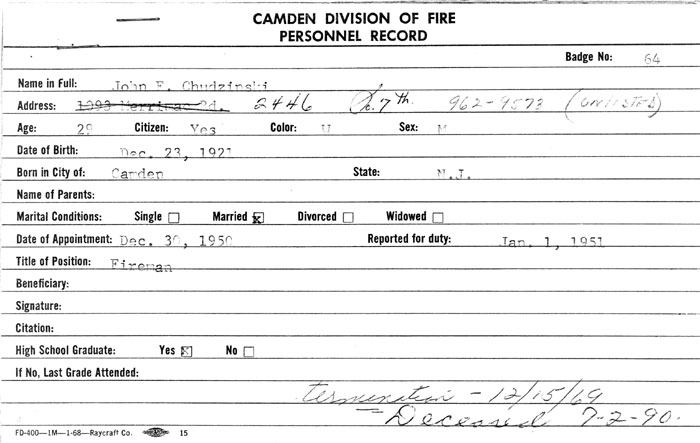 CAMDEN DIVISION OF FIRE
PERSONNEL RECORD
Badge No: 64
Name in Full: John F. Chudzinski
Address: 1093 Merrimac Rd. 2446 So. 7th. 962-9573 (UNLISTED)
Age: 29 Citizen: Yes Color: W Sex: M
Date of Birth: Dec. 23, 1921
Born in City of: Camden State: N.J.
Name of Parents:
Marital Conditions: Single Married x Divorced Widowed
Date of Appointment: Dec. 30, 1950 Reported for duty: Jan. 1, 1951
Title of Position: Fireman
Beneficiary:
Signature:
Citation:
High School Graduate: Yes x No
If No, Last Grade Attended:
termination - 12/15/69
Deceased 7-2-90.
FD-400—1M—1-68—Raycraft Co. 15